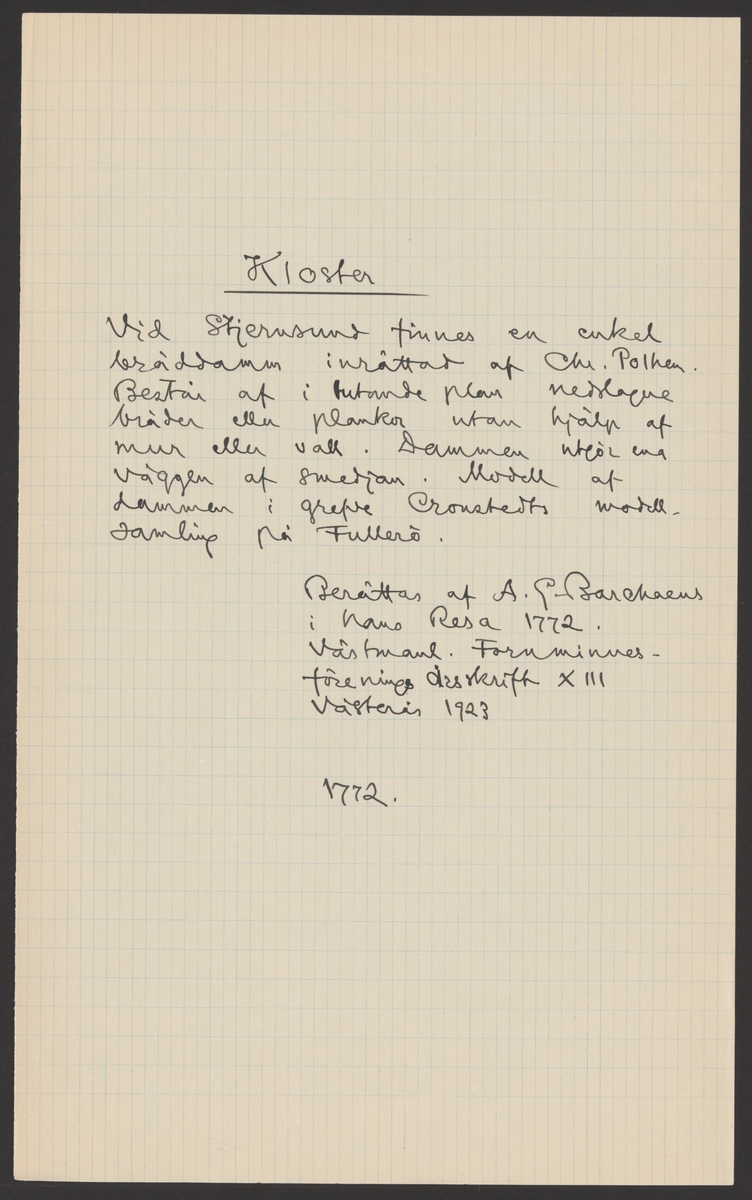 Kloster
Vid Stjernsund finnes en enkel
bräddamm inrättad af Chr. Polhem.
Består af i lutande plan nedslagne
bräder eller plankor utan hjälp af
mur eller vall. Dammen utgör ena
väggen af smedjan. Modell af
dammen i grefve Cronstedts modell-
samling på Fullerö.
Berättas af A. G. Barchaeus
i hans Resa 1772.
Västmanl. Fornminnes-
förenings årsskrift XIII
Västerås 1923
1772.